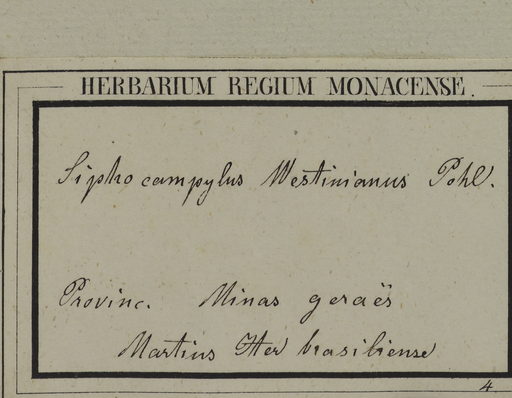 HERBARIUM REGIUM MONACENSE.
Siphocampylus Westinianus Pohl.
Provinc. Minas geraës
Martius Iter brasiliense
4